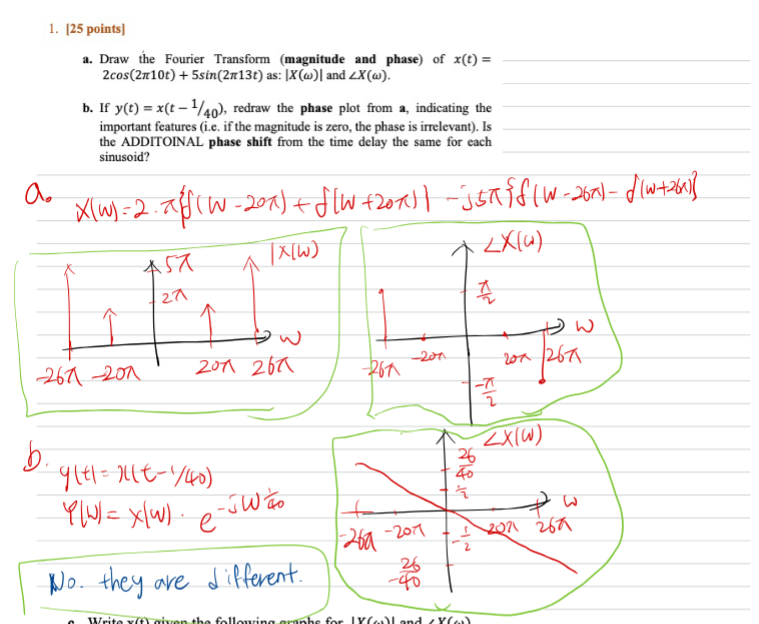 1. [25 points]
a. Draw the Fourier Transform (magnitude and phase) of x(t) =
2cos(2π10t) + 5sin(2π13t) as: |X(ω)| and ∠X(ω).
b. If y(t) = x(t − 1/40), redraw the phase plot from a, indicating the
important features (i.e. if the magnitude is zero, the phase is irrelevant). Is
the ADDITOINAL phase shift from the time delay the same for each
sinusoid?
a. X(w) = 2·π{δ(w-20π)+δ(w+20π)} -j5π{δ(w-26π)-δ(w+26π)}
5π |X(w)
2π
w
-26π -20π 20π 26π
∠X(w)
π/2
w
-26π -20π 20π 26π
-π/2
b. y(t) = x(t-1/40)
Y(w) = X(w) · e^-jw 1/40
No. they are different.
∠X(w)
26/40
1/2
w
-26π -20π 20π 26π
-1/2
-26/40
c. Write x(t) given the following graphs for |X(ω)| and ∠X(ω)